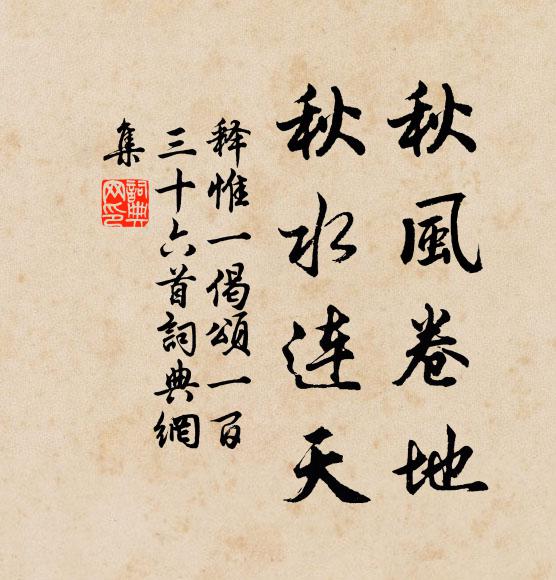 秋風卷地
秋水连天
释惟一偈頌一百
三十六首詞典網
集
詞典
网印